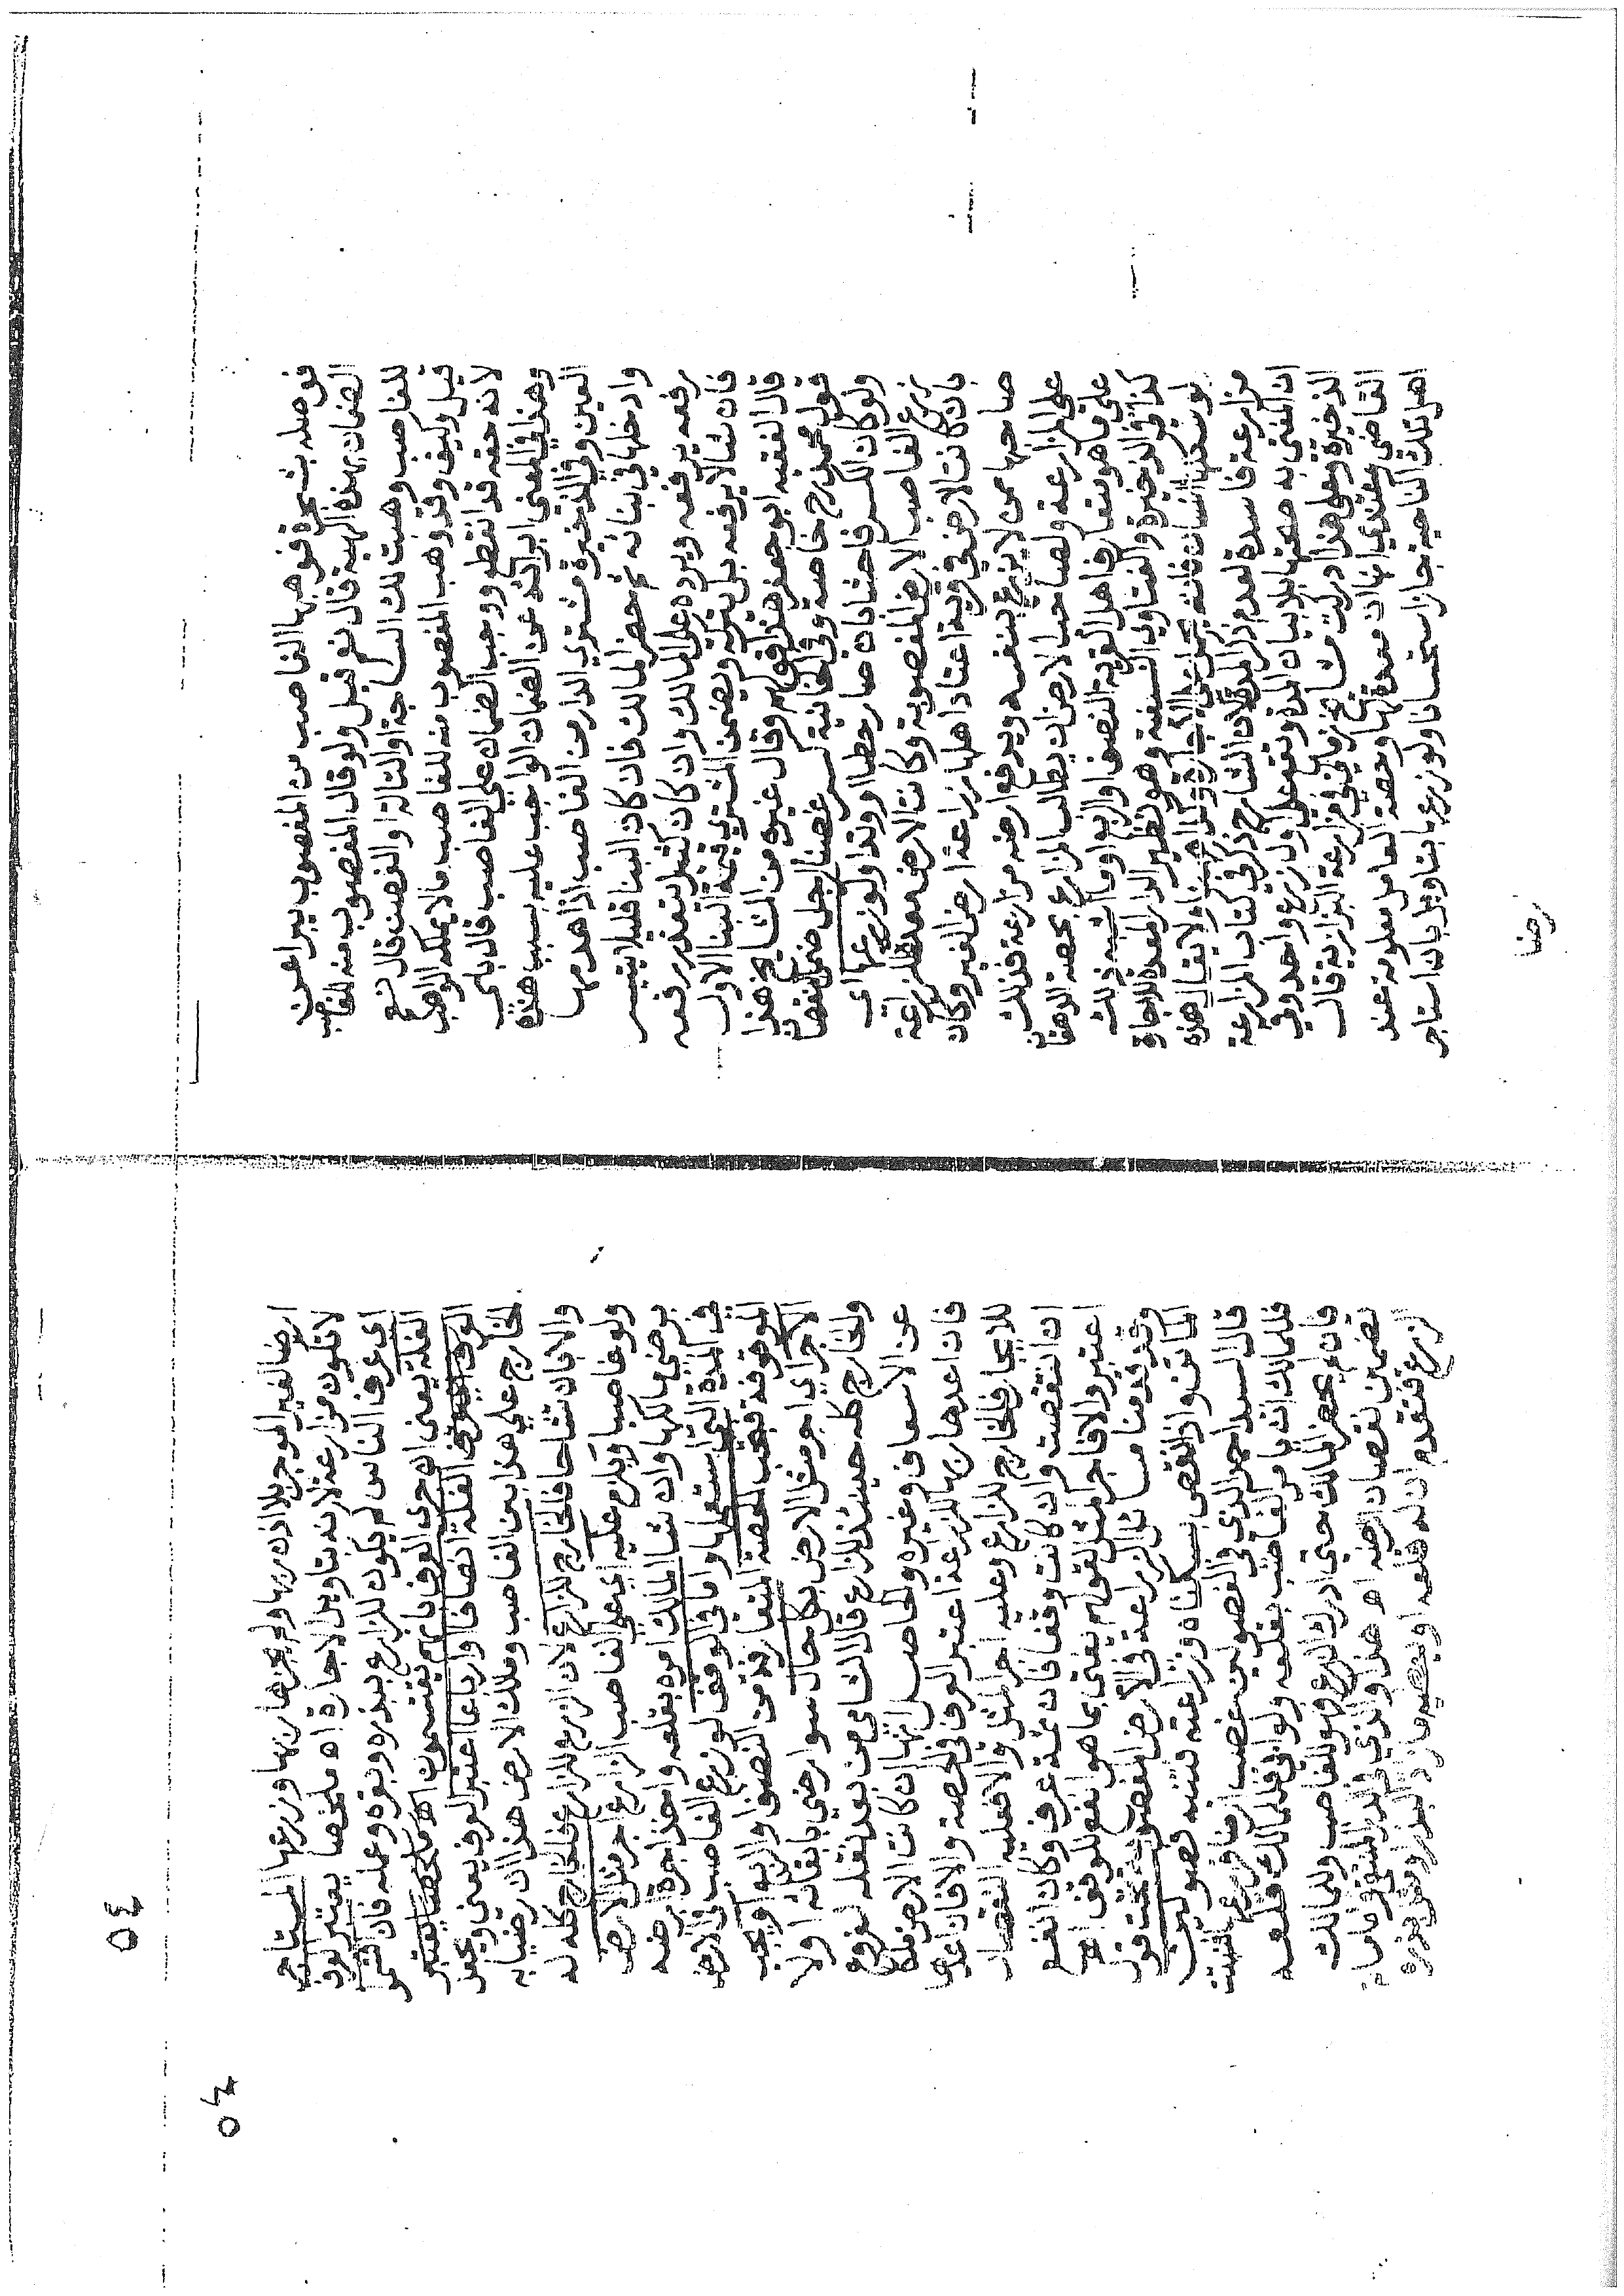 فوصله بشجرة فوهبها الغاصب من المغصوب يبرا عن
الضمان بهذه الهبة قال نعم قيل ولو قال المغصوب منه للغاصب
للغاصب وهبت لك الساجة او التالة او الغصن قال نعم
قيل وكيف وقد وهب المغصوب منه للغاصب ما لا يملكه الواهب
لانه حقه قد انقطع ووجب الضمان على الغاصب قال بلى
وهذا في المعنى ابرائه عن الضمان الواجب عليه بسبب هذه
العين وفي الذخيرة مشتري الدار من الغاصب اذا هدمها
وادخلها في بنائه ثم حضر المالك فان كان البنا قليلا يتيسر
رفعه يرفعه ويرده على المالك وان كان كثيرا يتعذر رفعه
فان شا لا يرفعه بل يتركه ويضمن المشتري قيمة البنا الاول
قال الفقيه ابو جعفر هذا قولهم وقال غيره من المشايخ هذا
قول محمد رح خاصة وفي الخانية كسر غصنا لرجل ضمن النقصان
ولو كان الكسر فاحشا بان صار حطبا او وتدا ولو زرعها اي
زرع الغاصب الارض المغصوبة وكانت الارض معدة للزراعة
بان كانت الارض في قرية اعتاد اهلها زراعة ارض الغير وكان
صاحبها ممن لا يزرع بنفسه ويدفع ارضه مزارعة فذلك
على المزارعة ولصاحب الارض ان يطالب المزارع بحصة الدهقان
على ما هو متعارف اهل القرية النصف او الربع او ما اشبه ذلك
كذا في الذخيرة والفتاوي النسفية وهو نظير الدار المعدة للاجارة
لو سكنها انسان فانه يحمل على الاجارة وكذا هنا ولا يقاس هذه
مزارعة فاسدة لعدم ذكر المدة لان الشارح ذكر في كتاب المزارعة
ان المفتى به صحتها بلا بيان المدة وتقع على اول زرع واحد وفي
الذخيرة وعلى هذا ادركت مشايخ زماني في مزارعة البزازية قال
القاضي وعندي انها ان معدة لها وحصة العامل معلومة عند
اهل تلك الناحية جاز استحسانا ولو زرعها بتاويل بان استاجر
ارضا
ارضا لغير الموجر بلا اذن ربها ولم يجزها ربها وزرعها المستاجر
لا تكون مزارعة لانه بتاويل الاجارة اه ملخصا يعتبر العرف
اي عرف الناس لم يكون للزارع ببذره وبقره وعمله فان اقتسموا
الغلة يعني ان جرى العرف بانهم يقتسمون اه ملخصا يعتبر
العرف الغلة انصافا او ارباعا اعتبر العرف يعني ويجعل
الخارج على هذا بين الغاصب ومالك الارض هذا ان رضيا به
والا بان تشاحا فالخارج للزارع لان الزرع للزارع فالخارج كله له
ولو غاصبا ويلزم عليه اي على الغاصب الزارع اجر مثل الارض
برضى مالكها وان شا المالك امره بقلعه واخذ اجرة ارضه
في المدة التي استعملها واما في الوقف لو زرع الغاصب في الارض
الموقوفة فتجب الحصة المتعارفة من النصف او الربع او يجب
الاجر اي اجر مثل الارض بكل حال سوا رضي بابقائه او لا
والخارج كله حينئذ للزارع قال الشامي من بعد نقله لفروع
عن الاسعاف وغيره والحاصل انها ان كانت الارض ملكا
فان اعدها ربها للزرعة اعتبر العرف في الحصة والا فان اعدها
للايجار فالخارج للزارع وعليه اجر المثل والا فعليه النقصان
ان انتقصت وان كانت وقفا فان ثمة عرف وكان انفع
اعتبر والا فاجر المثل لقولهم يفتى بما هو انفع للوقف اه
وقد قدمنا مسائل الزراعة في الارض المغصوبة تحت قول
الماتن واذا نقص بسكناه وزراعته فتنبه فصولين
قال السيد احمد الذي في الفصولين غصب ارضا فزرع فنبت
فللمالك ان يامر الغاصب بقلعه ولو ابى فللمالك قلعه
فان لم يحضر المالك حتى ادرك الزرع فهو للغاصب وللمالك
تضمين نقصان ارضه اه هذا والذي في المنتقى
الزرع فتقدم ان له قلعه
٥٤
٥٤